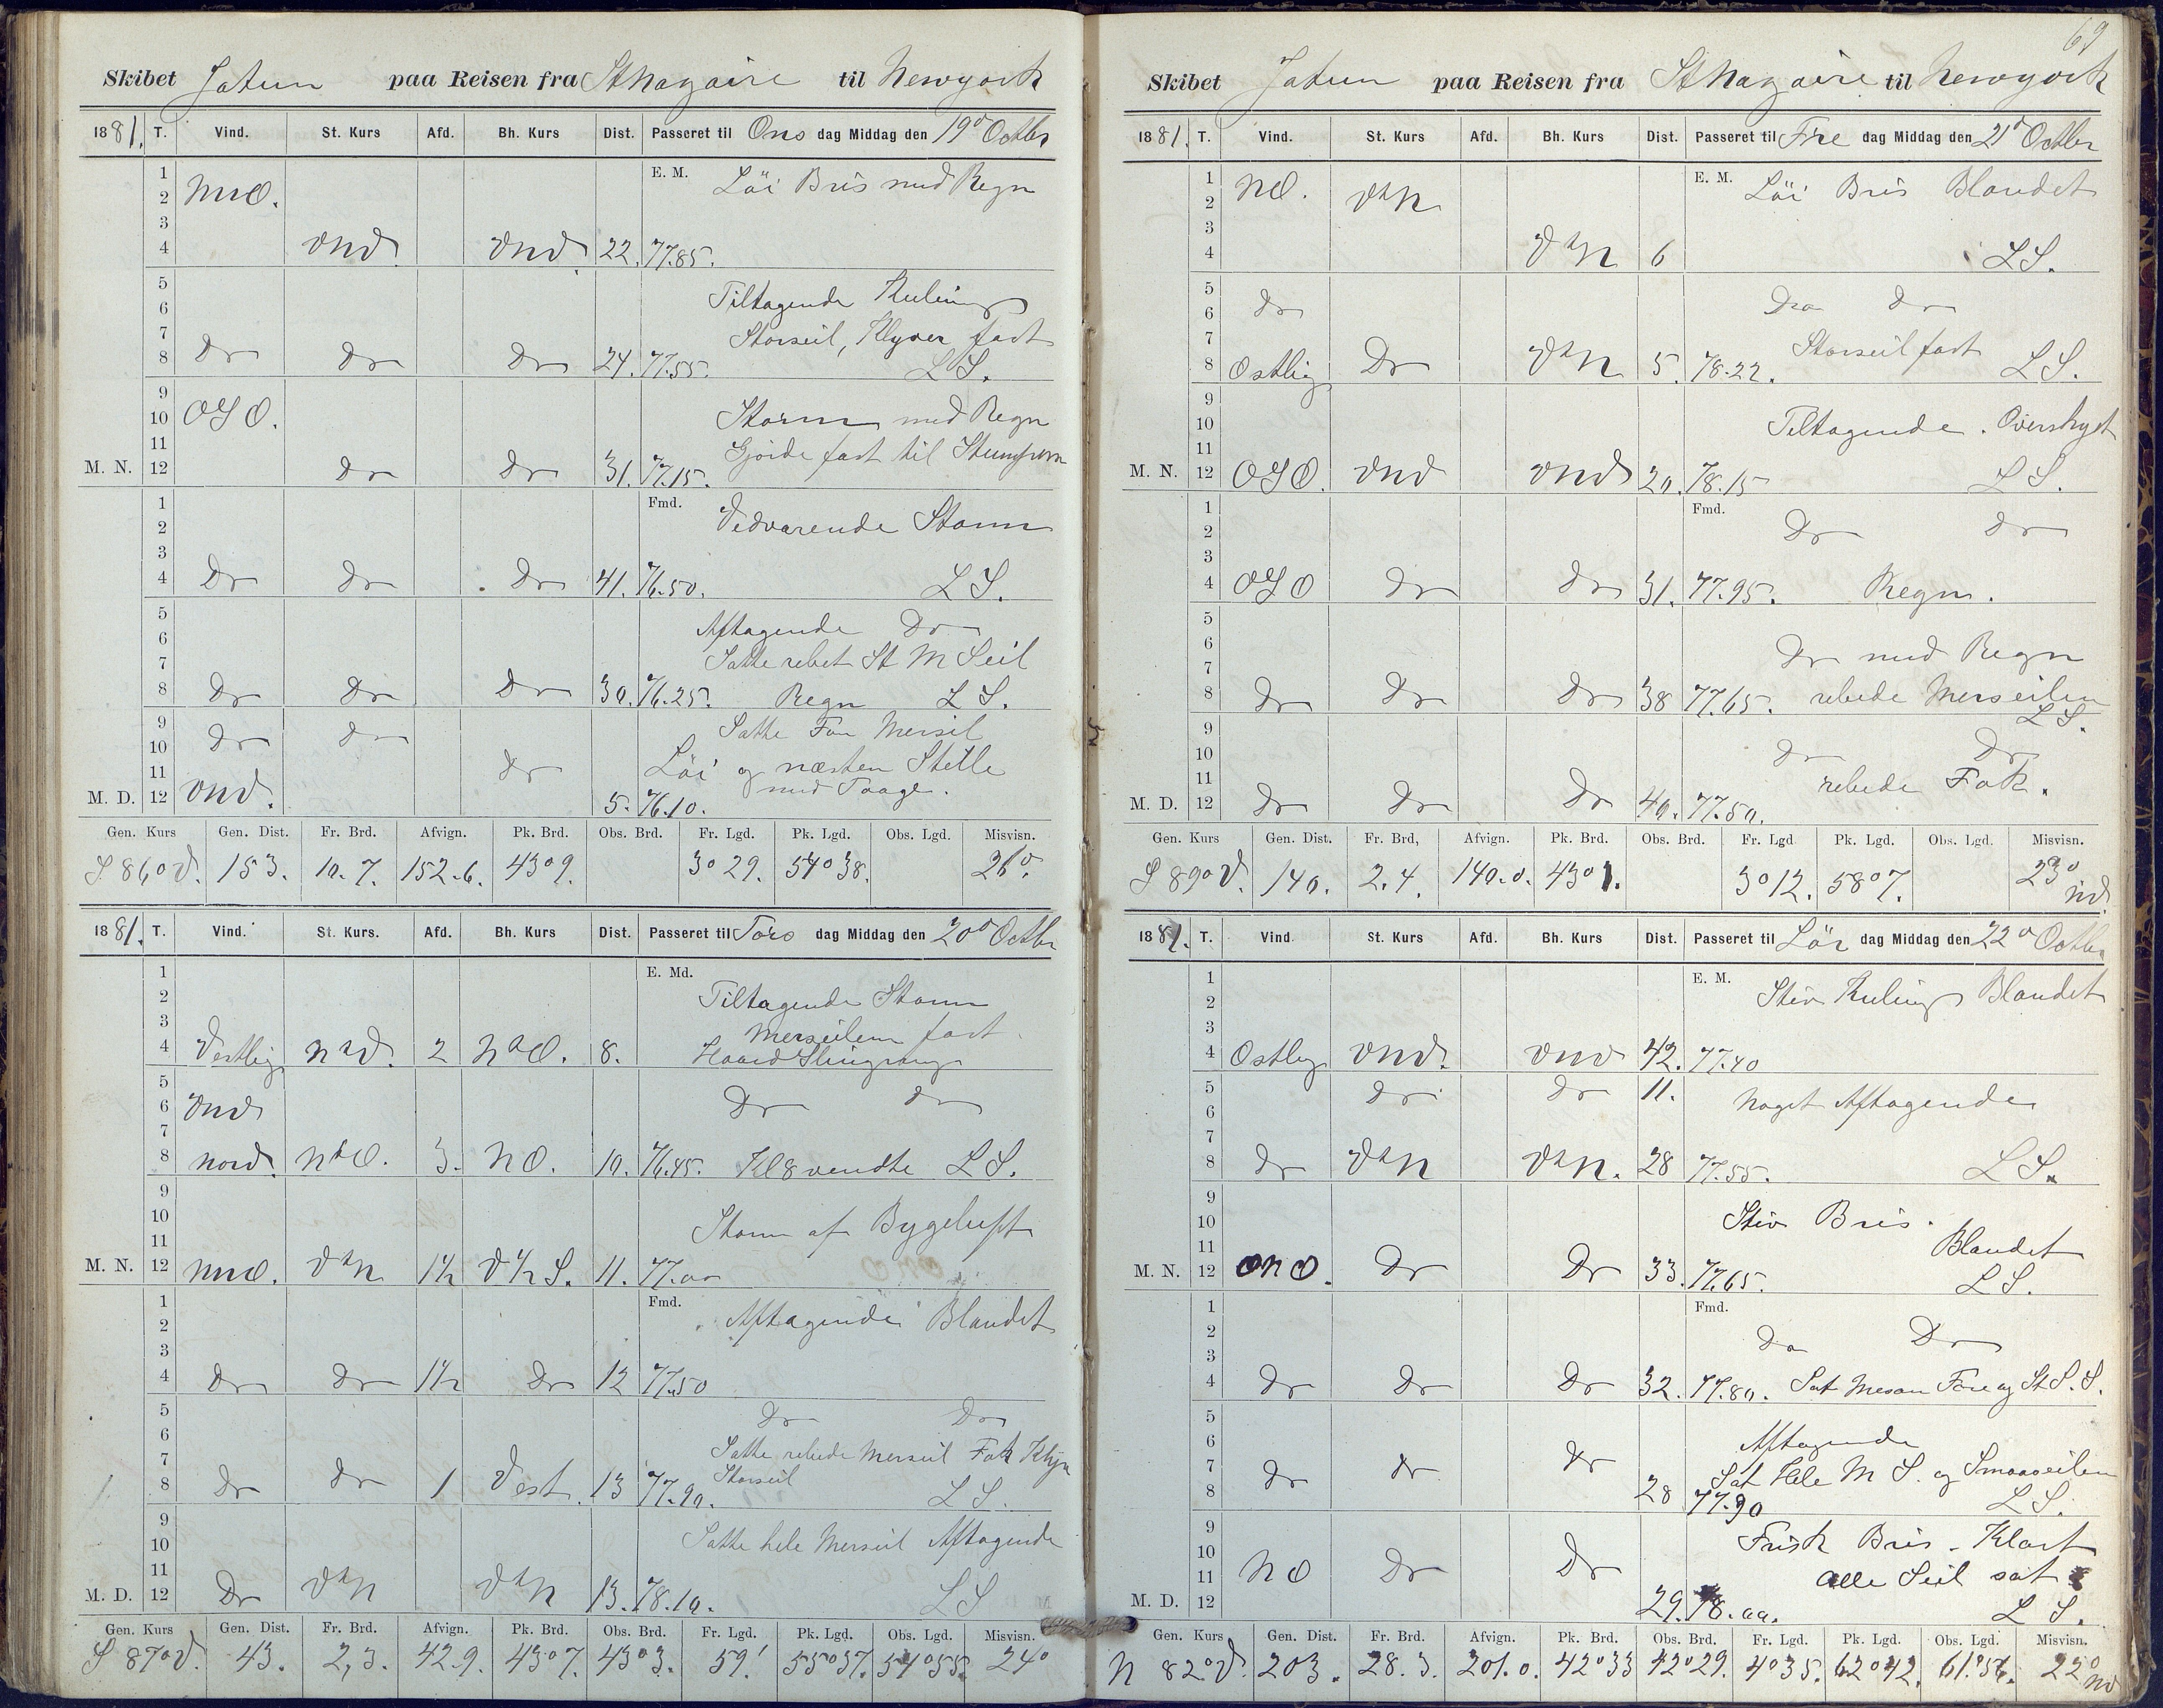 Skibet Jatun paa Reisen fra St Nazaire til Newyork
1881. T. Vind. St. Kurs Afd. Bh. Kurs Dist. Passeret til Ons dag Middag den 19de Octbr
1 E. M. Löi Bris med Regn
2 NNO.
3
4 VNV. VNV. 22. 77.85.
5 Tiltagende Kuling
6
7 Storseil, Klyver fast
8 Do Do Do 24. 77.55. LS.
9
10 OSO. Storm med Regn
11 Gjorde fast til Stumperne
M. N. 12 Do Do 31. 77.15.
1 Fmd. Vedvarende Storm
2
3
4 Do Do Do 41. 76.50. LS.
5 Aftagende Do
6 Satte rebet St M Seil
7
8 Do Do Do 30. 76.25. Regn LS.
9 Satte For Merseil
10 Do Do
11 Do Löi og næsten Stille
M. D. 12 VNV. 5. 76.10. med Taage.
Gen. Kurs Gen. Dist. Fr. Brd. Afvign. Pk. Brd. Obs. Brd. Fr. Lgd. Pk. Lgd. Obs. Lgd. Misvisn.
S 86° V. 153. 10.7. 152.6. 43°9. 3°29. 54°38. 26°.
1881. T. Vind. St. Kurs. Afd. Bh. Kurs Dist. Passeret til Tors dag Middag den 20de Octbr
1 E. Md.
2 Tiltagende Storm
3 Merseilene fast
4 Vestlig NtV. 2 NtO. 8. Haard Slingring
5
6 VNV Do Do
7
8 Nord. NtO. 3. NO. 10. 76.45. Kl 8 vendte LS.
9
10 Storm af Bygeluft
11
M. N. 12 NNO. VtN 1½ V½S. 11. 77.00
1 Fmd. Aftagende Blandet
2
3
4 Do Do 1½ Do 12 77.50
5 Do Do
6
7 Satte rebede Merseil Fok Klyv
8 Do Do 1 Vest. 13 77.90. Storseil LS.
9
10 Satte hele Merseil Aftagende
11
M. D. 12 Do VtN VtN 13. 78.10. LS
Gen. Kurs Gen. Dist. Fr. Brd. Afvign. Pk. Brd. Obs. Brd. Fr. Lgd. Pk. Lgd. Obs. Lgd. Misvisn.
S 87° V. 43. 2,3. 42.9. 43°7. 43°3. 59' 55°37. 54°55. 24°
69
Skibet Jatun paa Reisen fra St Nazaire til Newyork
1881. T. Vind. St. Kurs Afd. Bh. Kurs Dist. Passeret til Fre dag Middag den 21de Octbr
1 NO. E. M. Löi Bris Blandet
2 VtN
3
4 VtN 6 LS.
5
6 Do Do Do
7 Storseil fast
8 Ostlig Do VtN 5. 78.22. LS.
9
10 Tiltagende. Overskyet
11
M. N. 12 OSO. VNV VNV 20. 78.15 LS.
1 Fmd.
2 Do Do
3
4 OSO Do Do 31. 77.95. Regn.
5
6 Do med Regn
7
8 Do Do Do 38 77.65. rebede Merseilen LS.
9
10 Do Do
11 rebede Fok.
M. D. 12 Do Do Do 40. 77.50.
Gen. Kurs Gen. Dist. Fr. Brd, Afvign. Pk. Brd. Obs. Brd. Fr. Lgd Pk. Lgd. Obs. Lgd. Misvisn.
S 89° V. 140. 2.4. 140.0. 43°1. 3°12. 58°7. 23° NV.
1881. T. Vind St. Kurs Afd. Bh. Kurs Dist. Passeret til Lör dag Middag den 22de Octbr
1 E. M.
2 Stiv Kuling Blandet
3
4 Ostlig VNV. VNV 42. 77.40
5 Do Do 11.
6 Noget Aftagende
7
8 Do VtN VtN. 28 77.55. LS.
9
10 Stiv Bris.
11 Blandet
M. N. 12 ONO. Do Do 33. 77.65. LS.
1 Fmd.
2 Do Do
3
4 Do Do Do 32. 77.80. Sat Mesan Fore og St S. S.
5
6 Aftagende
7 Do Do Do Sat Hele M S. og Smaaseilen
8 28 77.90 LS.
9
10 Frisk Bris. Klart
11 NO Do Do alle Seil sat
M. D. 12 29. 78.00. LS.
Gen. Kurs Gen. Dist. Fr. Brd. Afvign. Pk. Brd. Obs. Brd. Fr. Lgd. Pk. Lgd. Obs. Lgd. Misvisn.
N 82° V. 203. 28.3. 201.0. 42°33 42°29. 4°35. 62°42. 61°56. 22° NV